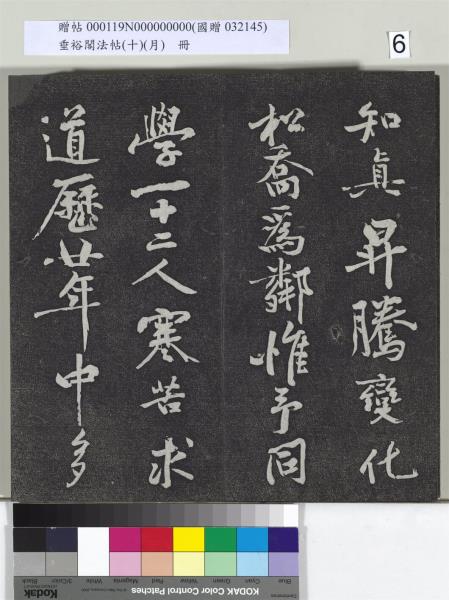 贈帖 000119N000000000(國贈 032145)
垂裕閣法帖(十)(月) 冊
6
知真昇騰變化
松喬為鄰惟予同
學一十二人寒苦求
道歷廿年中多
Blue Cyan Green Yellow Red Magenta White 3/Color Black
Kodak
KODAK Color Control Patches